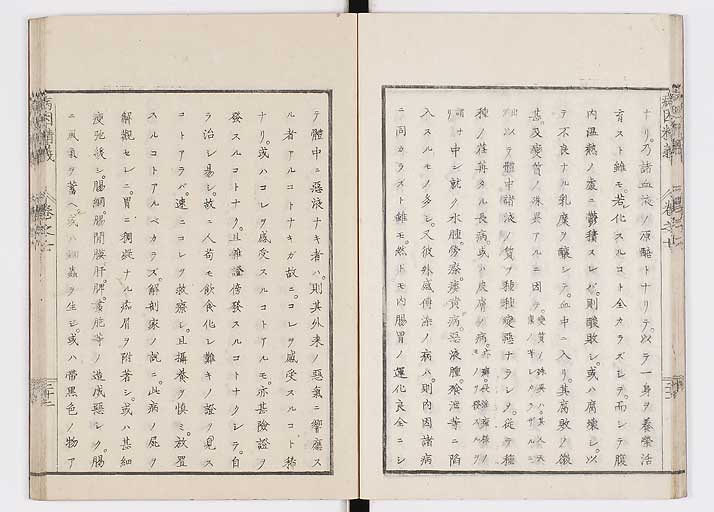 ナリ。乃諸血液ノ原醅トナリテ。以テ一身ヲ養榮活
育スト雖モ。若化スルコト全カラズシテ。而シテ腹
内温熱ノ處ニ鬱積スレバ。則酸敗シ。或ハ腐壞シ。以
テ不良ナル乳糜ヲ釀シテ。血中ニ入リ。其腐敗ノ徽
甚。及變質ノ殊異アルニ因テ。
以テ體中諸液ノ質ヲ種種變惡ナラシメ。從テ種
種ノ荏苒タル長病。或ハ皮膚ノ病。
中ンヅ就ク水腫。傍療。瘻黄病。惡液腫。飧泄等ニ陷
入スルモノ多シ。又彼外感傳染ノ病ハ。則内因諸病
ニ同カラスト雖モ。然トモ内腸胃ノ運化良全ニシ
病因精義 卷之七
テ體中ニ惡液ナキ者ハ。則其外来ノ惡氣ニ響應ス
ル者アルコトナキカ故ニ。コレヲ感受スルコト稀
ナリ。或ハコレヲ感受スルコトアルモ。亦甚險證ヲ
發スルコトナク。且雜證傍發スルコトナクシテ。自
ラ治シ易シ。故ニ人苟モ飲食化シ難キノ證ヲ見ス
コトアラバ。速ニコレヲ救療シ。且攝養ヲ慎ミ。放置
スルコトアルベカラズ。解剖家ノ説ニ。此病ノ屍ヲ
解觀セシニ。胃ニ獨凝ナル痂屑ヲ附著シ。或ハ甚細
瘦弛緩シ。腸網。腸間膜。肝。脾。膽胞等ノ造成惡シク。腸
ニ風氣ヲ蓄ヘ。或ハ細蟲ヲ生シ。或ハ帶黑色ノ物ア
病因精義 卷之七 二十二